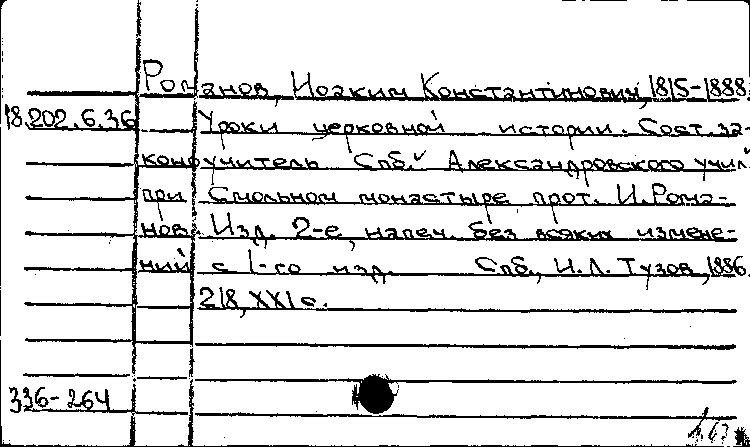 Романов, Иоаким Константинович, 1815-1888.
18.202.6.36 Уроки церковной истории. Сост. за-
коноучитель Спб. Александровского учил.
при Смольном монастыре прот. И. Рома-
нов. Изд. 2-е, напеч. без всяких измене-
ний с 1-го изд. Спб., И.Л. Тузов, 1886.
218, XXI с.
336-264